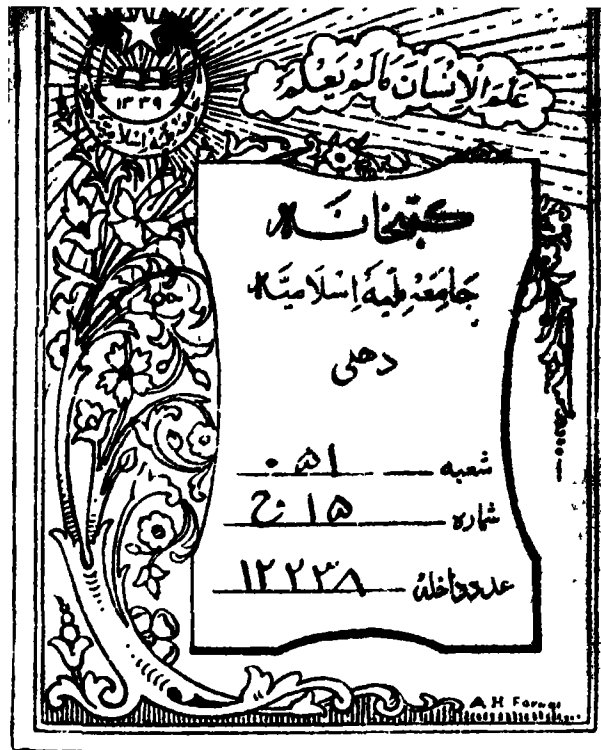 ۱۳۳۹
عَلَّمَ الْاِنْسَانَ مَا لَمْ يَعْلَمْ
کتبخانہ
جَامِعَہ مِلّیَہ اِسْلَامِیَّہ
دھلی
شعبہ ۰۵۱
شمارہ ۱۵ ج
عدد داخلہ ۱۲۲۳۸
A H Faruqi